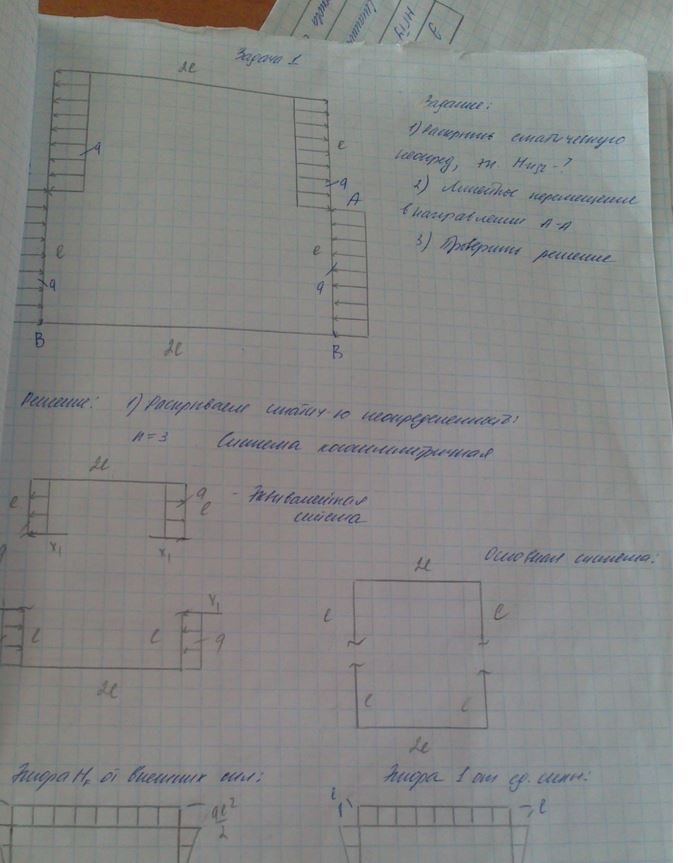 Задача 1
2l
q
l
q
A
l
l
q
q
B
2l
B
Задание:
1) Раскрыть статическую
неопред, т.
2) Линейное перемещение
в направлении A-A
3) Проверить решение
Решение: 1) Раскрываем статич-ю неопределенность:
n=3 Система кососимметричная
2l
l
q
l
q
x₁
x₁
- Эквивалентная
система
Основная система:
2l
l
l
l
l
2l
x₁
l
l
q
2l
Эпюра от внешних сил:
Эпюра 1 от ед. силы:
ql²/2
l
l